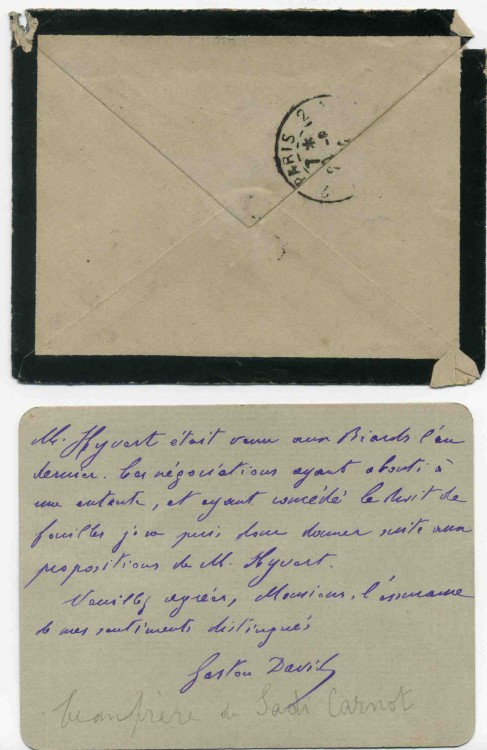 PARIS 2
M. Hyvert était venu aux Biards l'an
dernier. Ces négociations ayant abouti à
une entente, et ayant concédé le droit de
fouilles je ne puis donc donner suite aux
propositions de M. Hyvert.
Veuillez agréer, Monsieur, l'assurance
de mes sentiments distingués
Gaston David
beau frère de Sadi Carnot